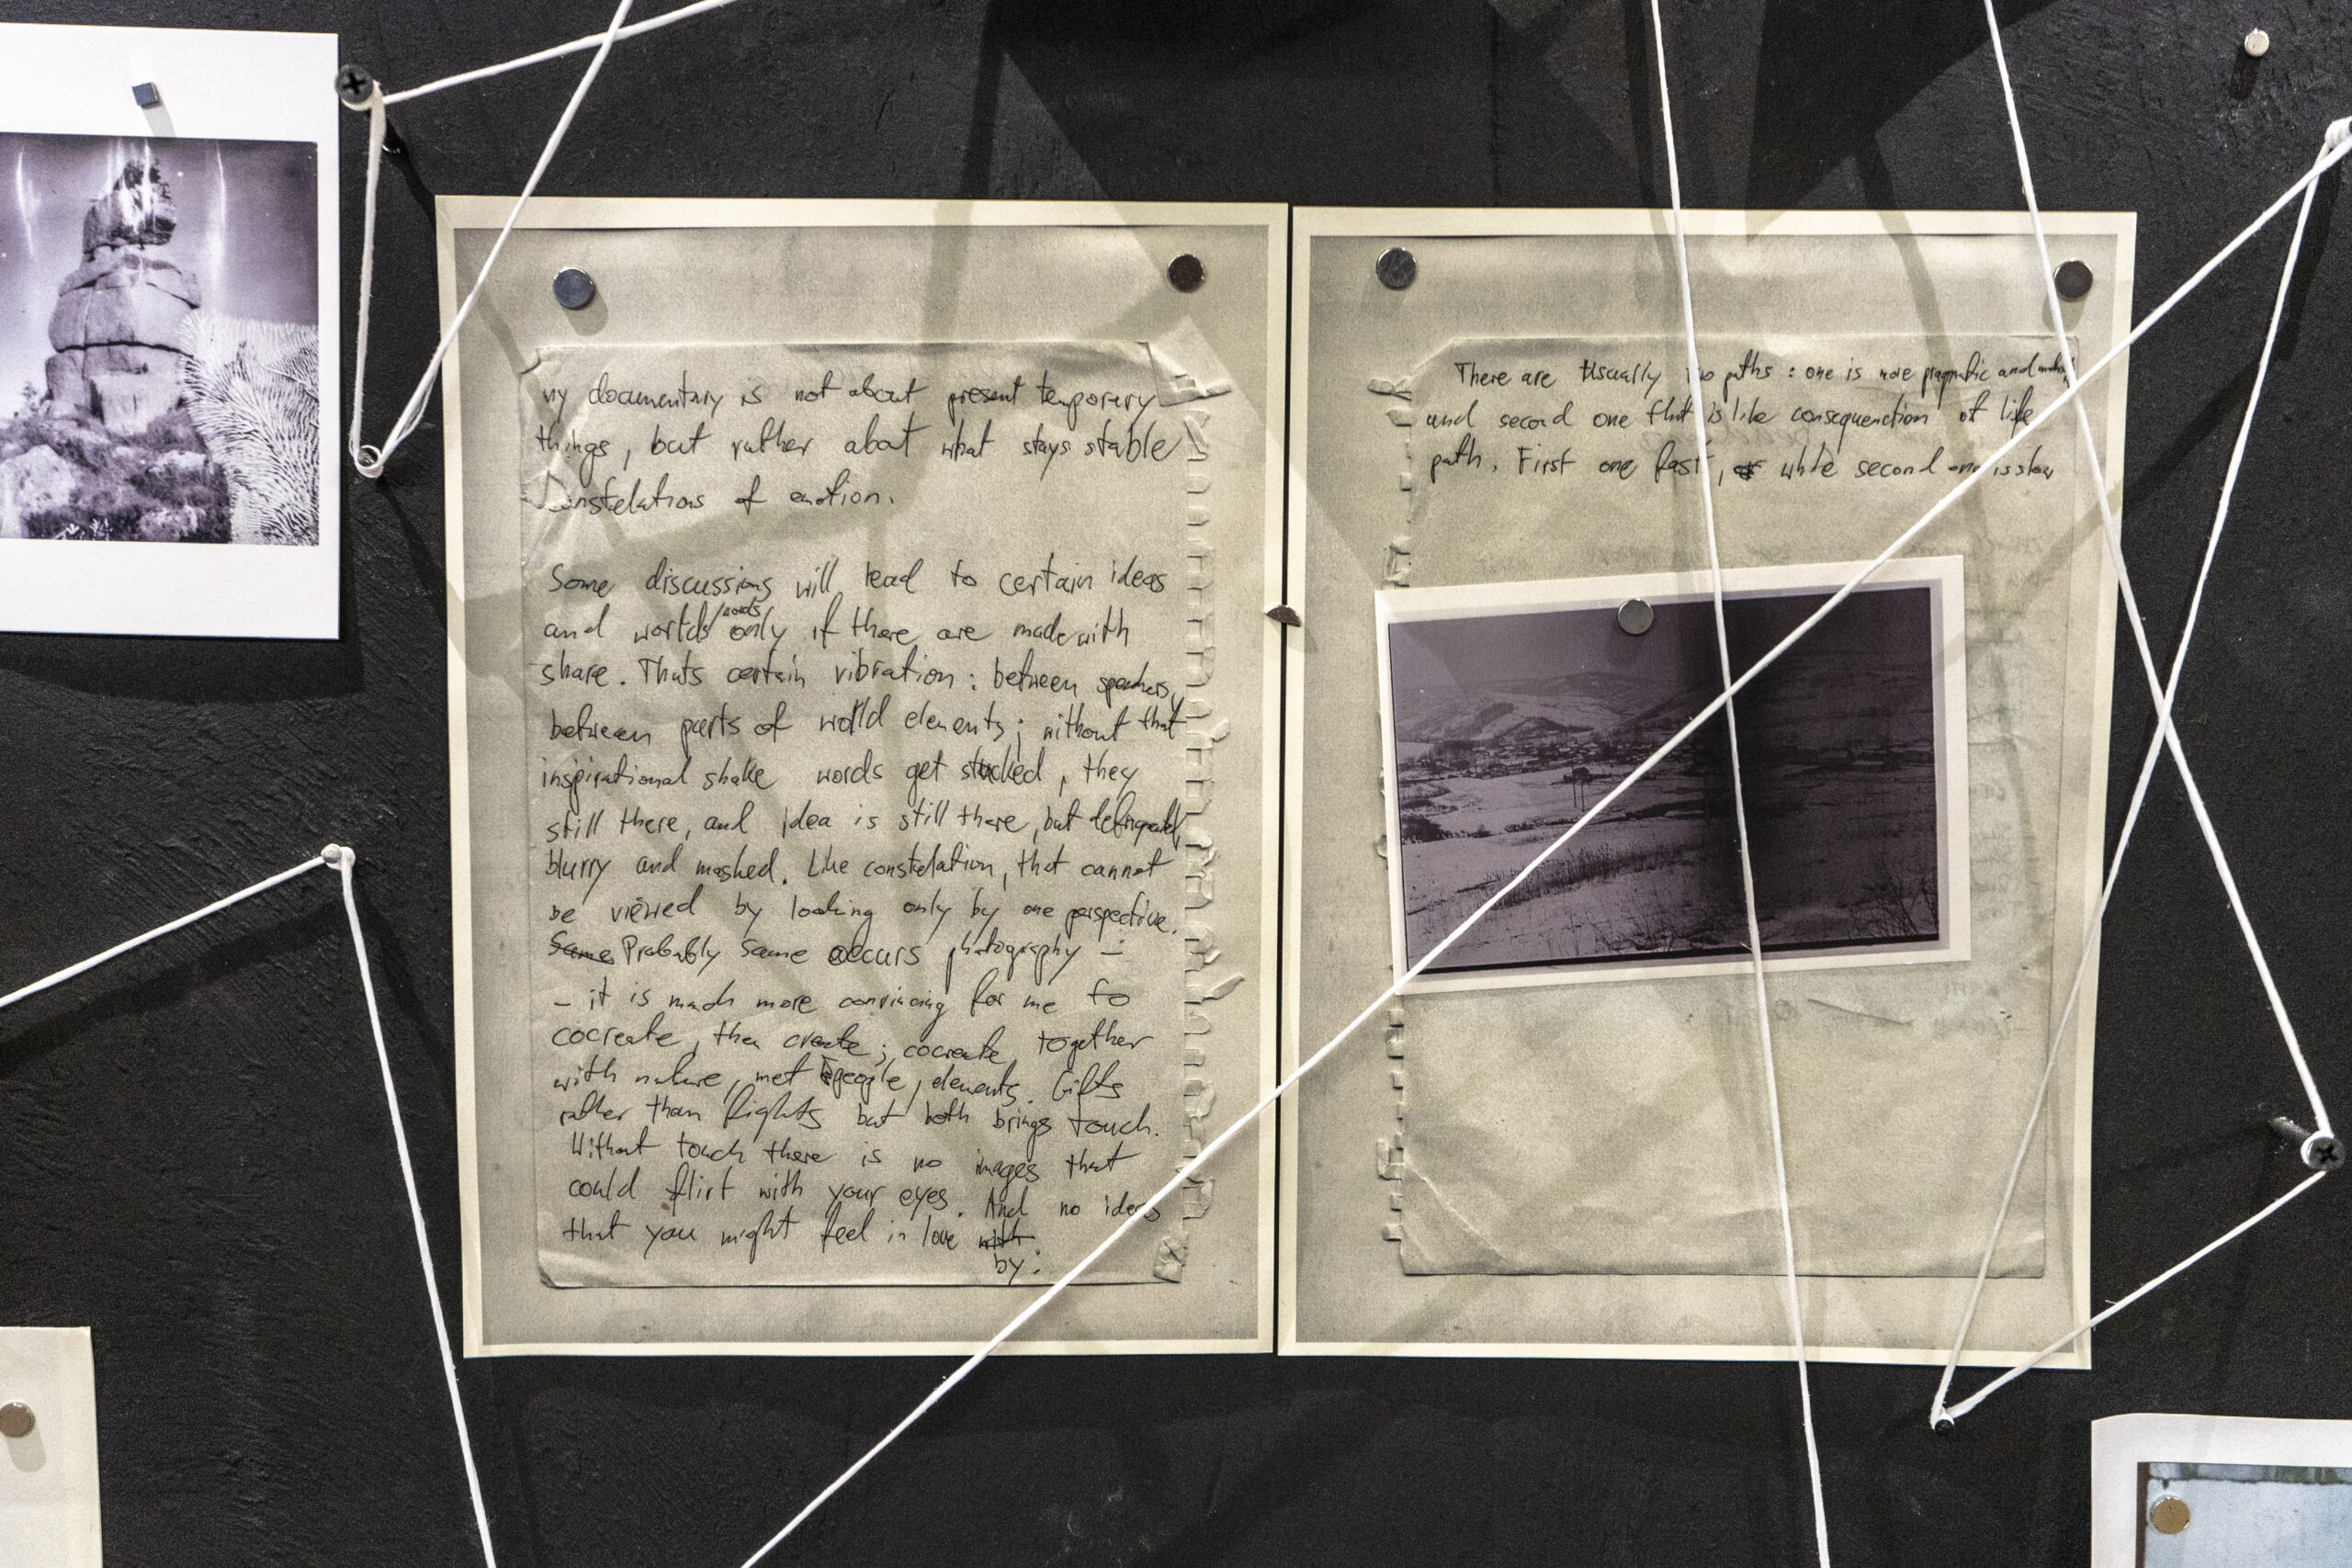 my documentary is not about present temporary
things, but rather about what stays stable
constelations of emotion.
Some discussions will lead to certain ideas
and worlds/words only if there are made with
share. Thats certain vibration: between speakers,
between parts of world elements; without that
inspirational shake words get stucked, they
still there, and idea is still there, but
blurry and mashed. Like constelation, that cannot
be viewed by looking only by one perspective.
Same Probably same occurs photography –
– it is much more convincing for me to
cocreate, then create; cocreate together
with nature, met people, elements. Gifts
rather than fights but both brings touch.
Without touch there is no images that
could flirt with your eyes. And no ideas
that you might feel in love with
by:
There are Usually two paths: one is more pragmatic and
and second one that is like consequention of life
path. First one fast, while second one is slow